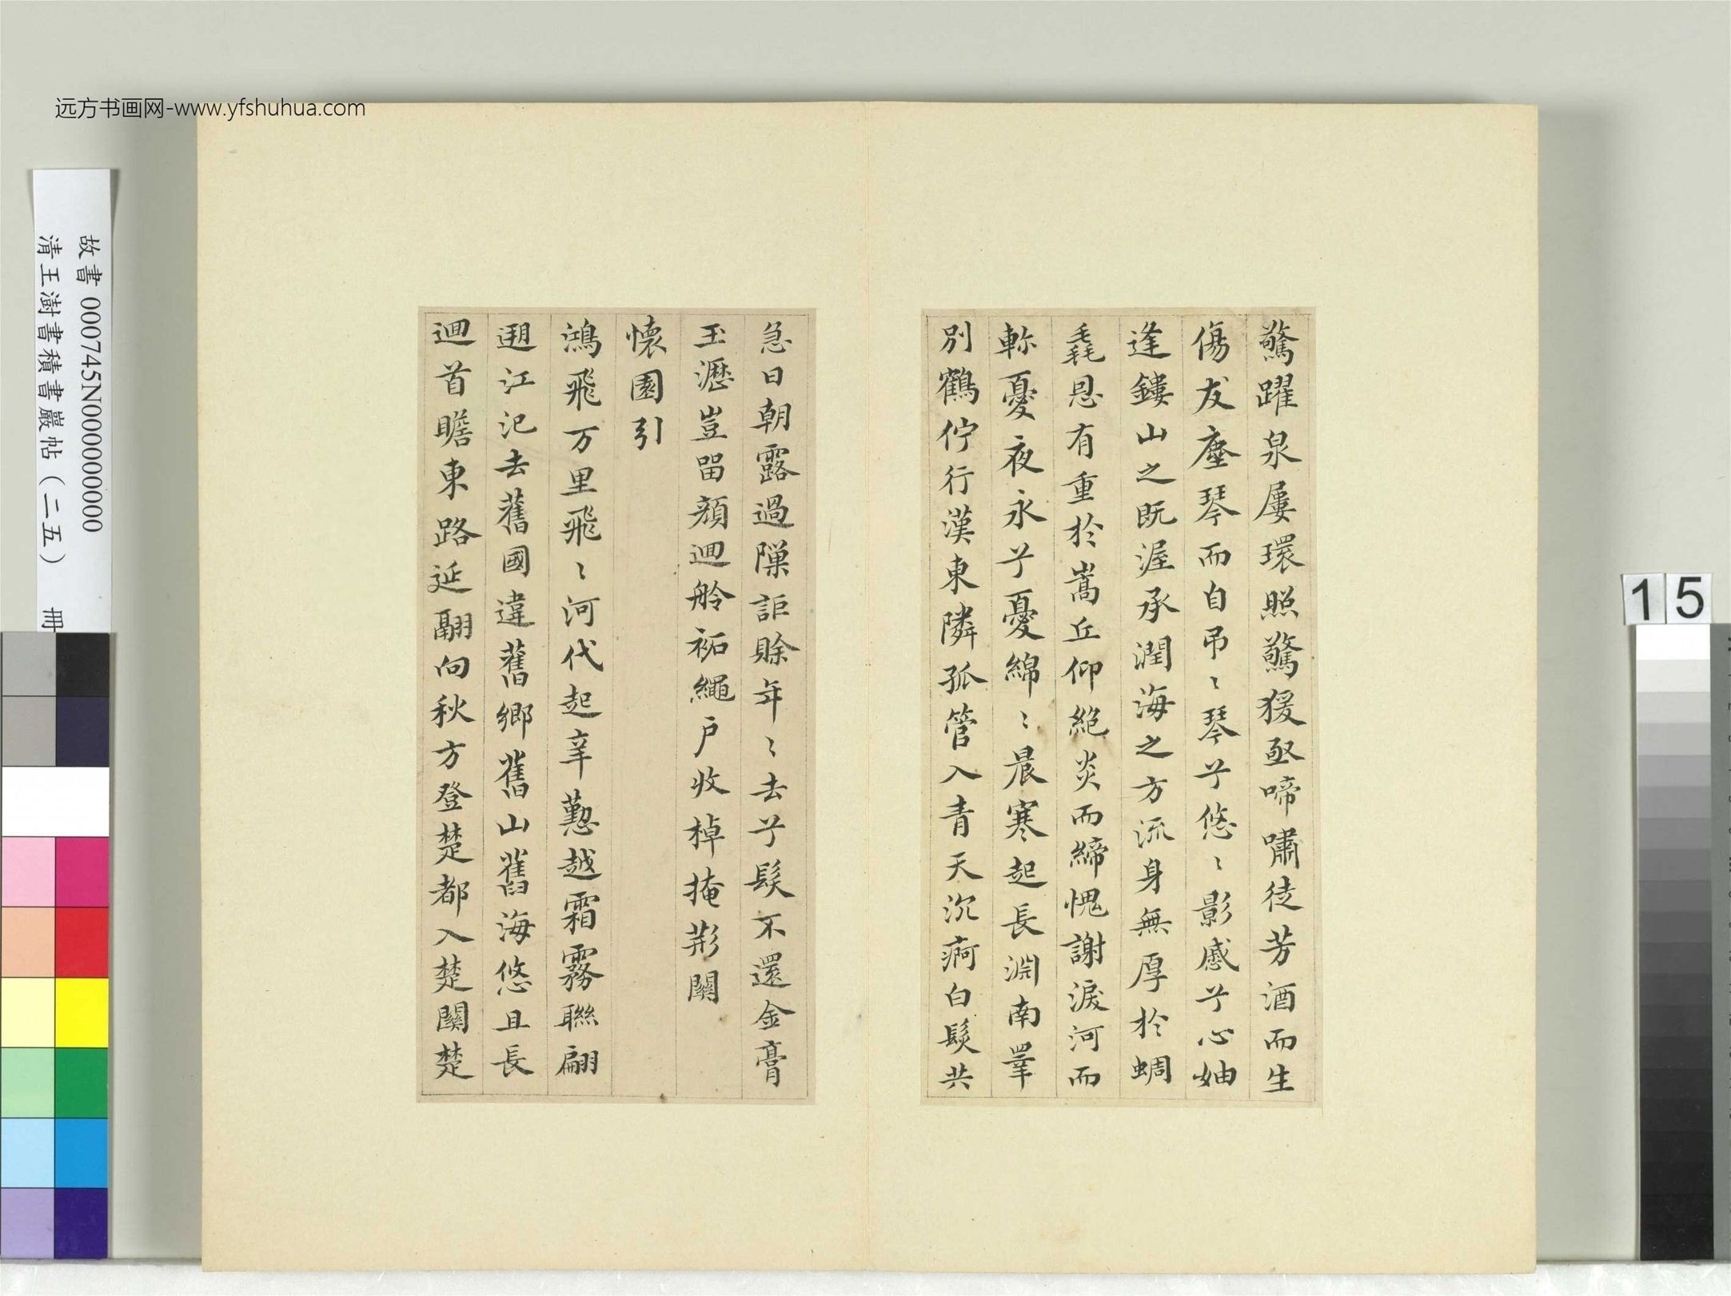 远方书画网-www.yfshuhua.com
故書 000745N000000000
清王澍書積書巖帖（二五） 冊
15
驚躍泉屢環照驚猨亟啼嘯徒芳酒而生
傷友塵琴而自弔〻琴兮悠〻影慼兮心妯
逢鏤山之既渥承潤海之方流身無厚於蜩
毳恩有重於嵩丘仰絕炎而締愧謝淚河而
軫憂夜永兮憂綿〻晨寒起長淵南睪
別鶴佇行漢東隣孤管入青天沉痾白髮共
急日朝露過隟詎賒年〻去兮髮不還金膏
玉瀝豈留顏迴舲拓繩戶收棹掩荊關
懷園引
鴻飛万里飛〻河代起辛懃越霜霧聯翩
遡江汜去舊國違舊鄉舊山舊海悠且長
迴首瞻東路延翮向秋方登楚都入楚關楚